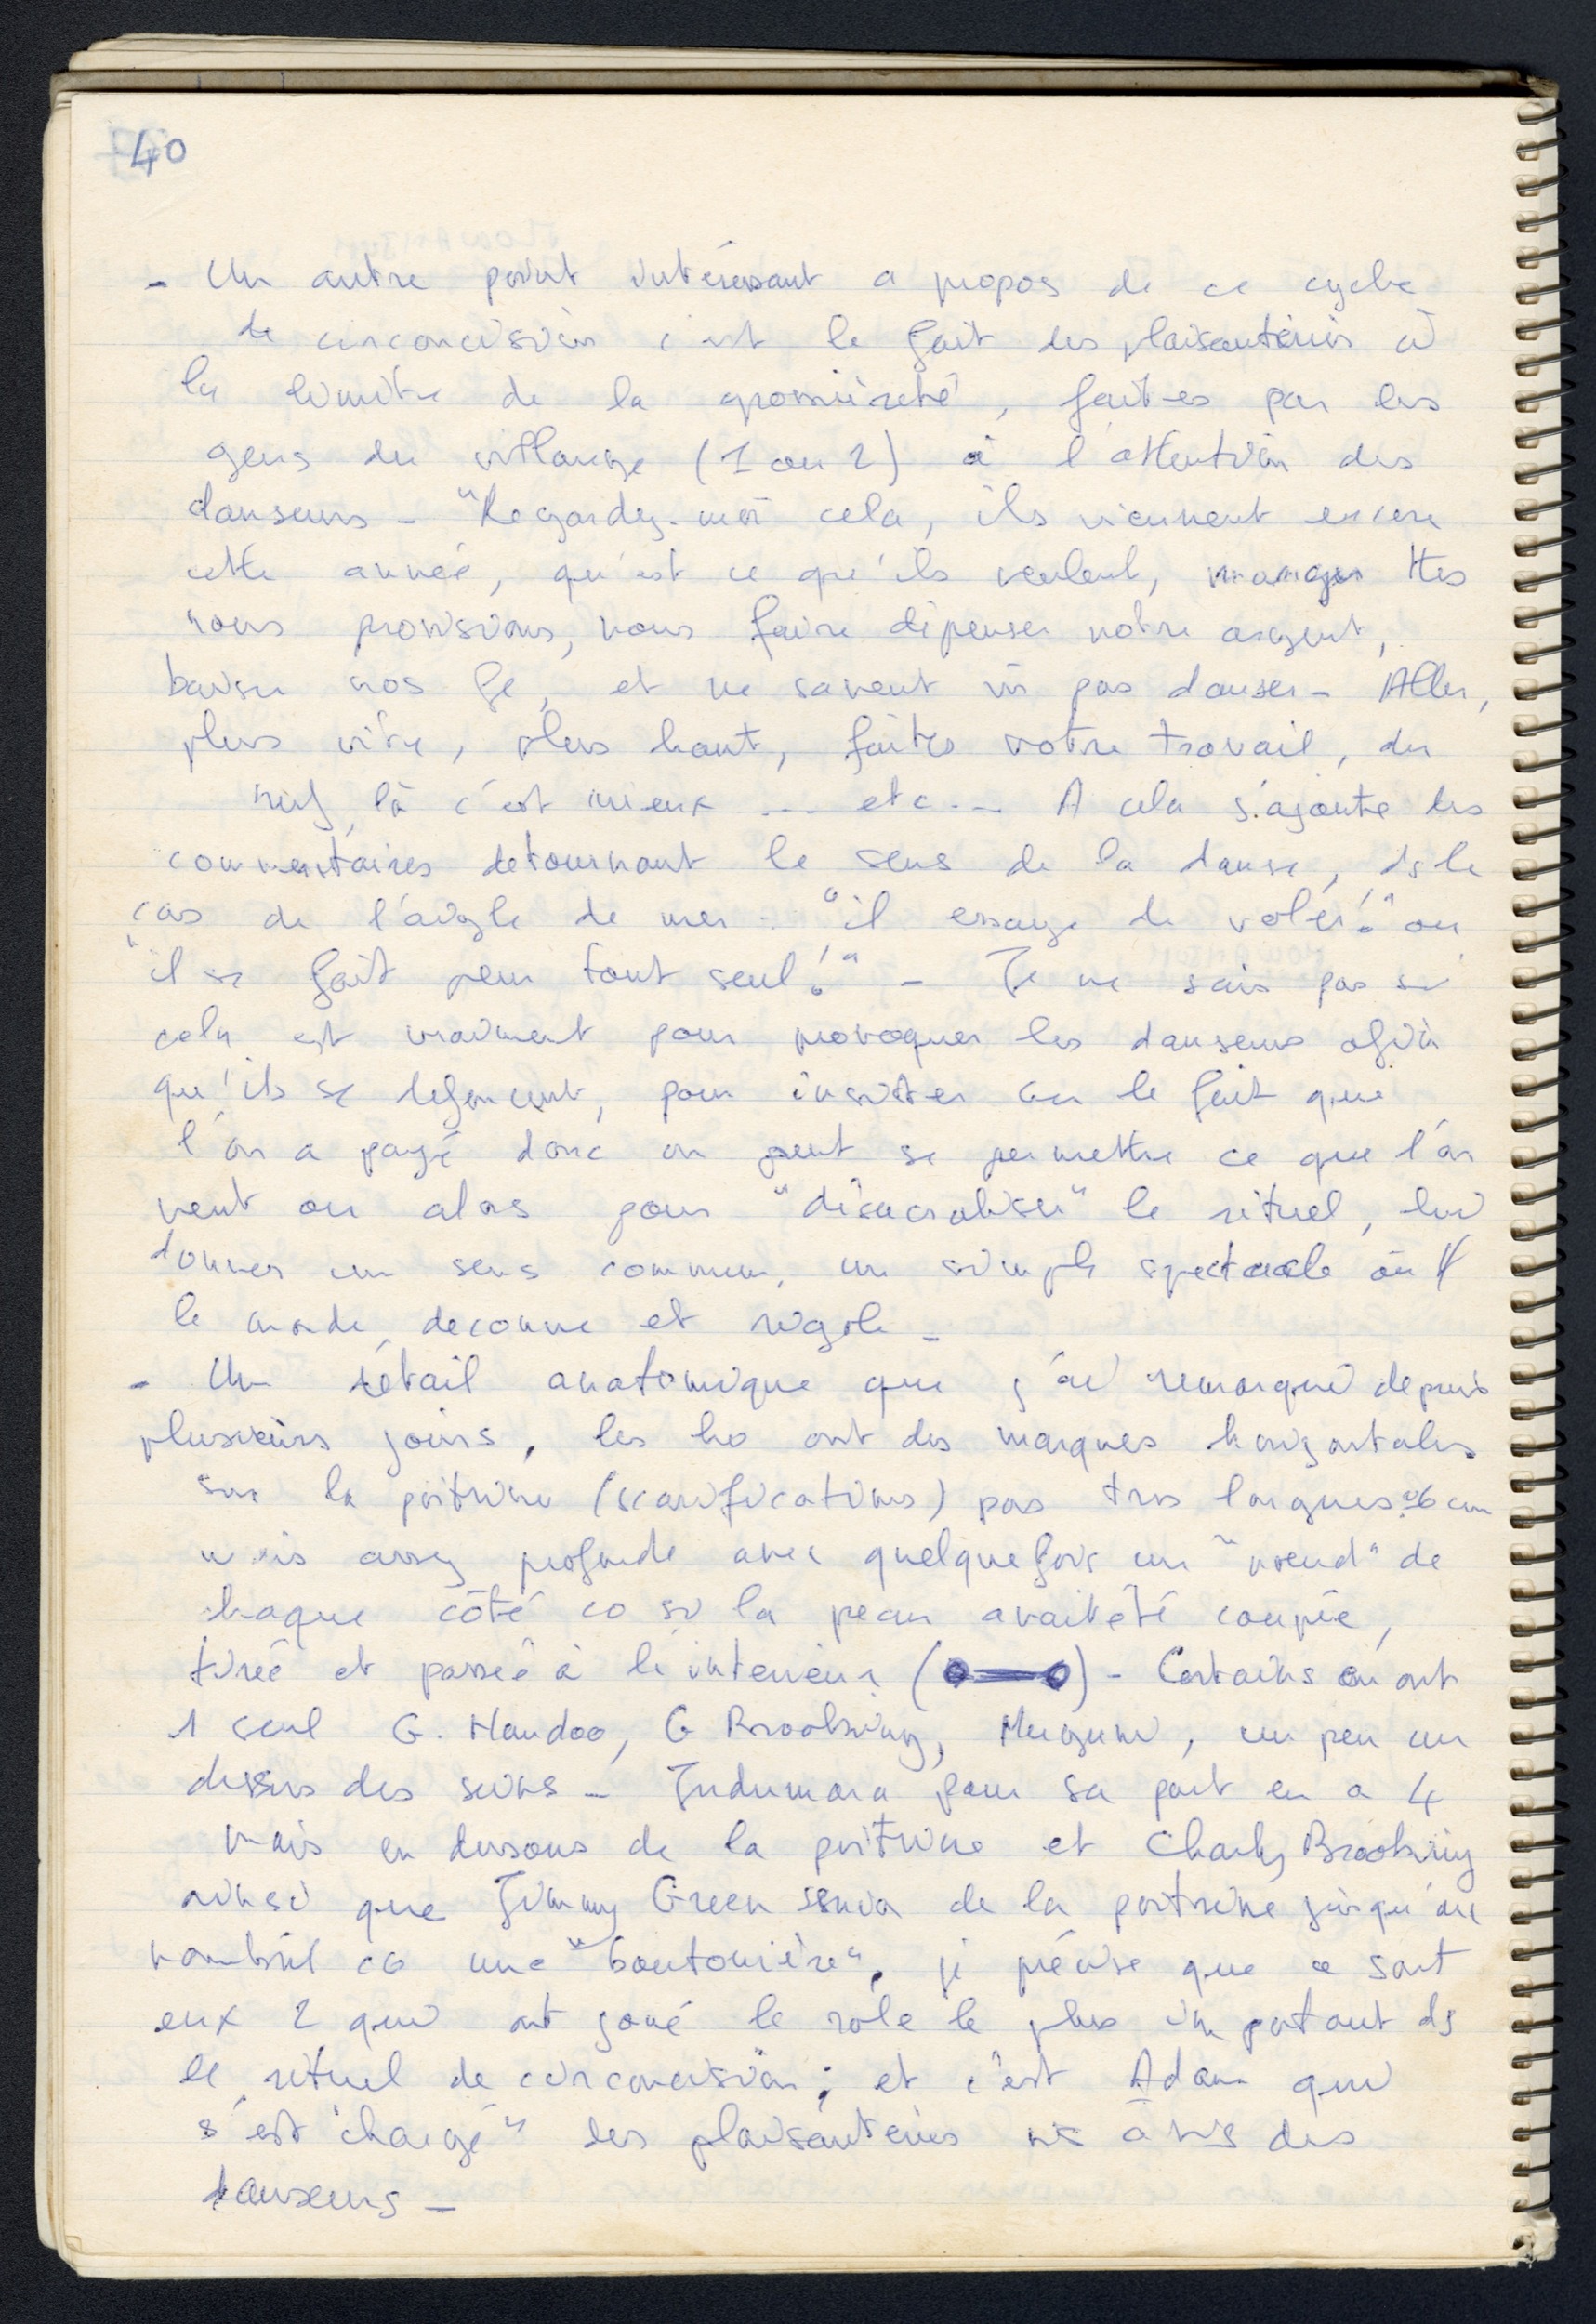 40
- Un autre point intéressant a propos de ce cycle
de circoncision c'est le fait des plaisanteries à
la limite de la grossièreté, faites par les
gens du village (1 ou 2) à l'attention des
danseurs - "Regardez-moi cela, ils viennent encore
cette année, qu'est ce que'ils veulent, manger ttes
nous provisions, nous faire dépenser notre argent,
baiser nos fe, et ne savent pas danser - Aller,
plus vite, plus haut, faites votre travail, du
nerf, là c'est mieux ... etc... A cela s'ajoute des
commentaires detournant le sens de la danse, ds le
cas de l'aigle de mer : "il essaye de voler!" ou
"il se fait peur tout seul!" - Je ne sais pas si
cela est vraiment pour provoquer les danseurs afin
qu'ils se defoncent, pour insister sur le fait que
l'on a payé donc on peut se permettre ce que l'on
veut ou alors pour "désacraliser" le rituel, lui
donner un sens commun, un simple spectacle où tt
le monde deconne et rigole -
- Un détail anatomique que j'ai remarqué depuis
plusieurs jours, les ho ont des marques horizontales
sur la poitrine (scarifications) pas très longues 6 cm
mais assez profonde avec quelquefois un "nœud" de
chaque côté co si la peau avait été coupée,
tirée et passée à l'interieur ( ) - Certains en ont
1 seul G. Mandoo, G Brooking, un peu au
dessus des seins - Indumara pour sa part en a 4
mais en dessous de la poitrine et Charly Brooking
ainsi que Jimmy Green de la poitrine jusqu'au
nombril co une "boutonière", je précise que ce sont
eux 2 qui ont joué le role le plus important ds
le rituel de circoncision ; et c'est Adam qui
s'est "chargé" des plaisanteries vis à vis des
danseurs -